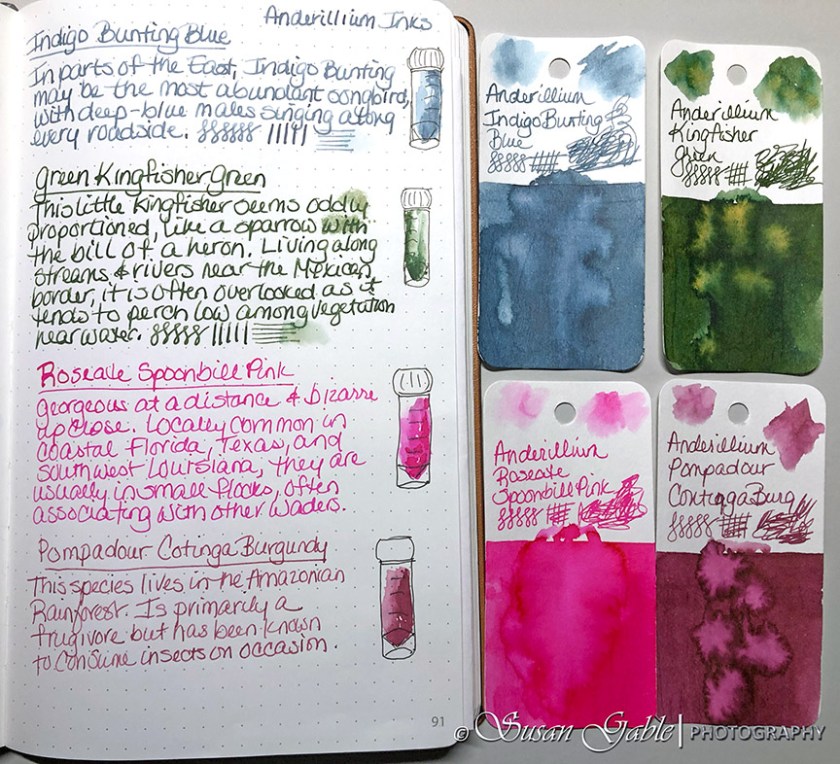 Anderillium Inks
Indigo Bunting Blue
In parts of the East, Indigo Bunting
may be the most abundant songbird,
with deep-blue males singing along
every roadside.
Green Kingfisher Green
This little Kingfisher seems oddly
proportioned, like a sparrow with
the bill of a heron. Living along
streams & rivers near the Mexican
border, it is often overlooked as it
tends to perch low among vegetation
near water.
Roseate Spoonbill Pink
Georgeous at a distance & bizarre
up close. Locally common in
coastal Florida, Texas, and
southwest Louisiana, they are
usually in small flocks, often
associating with other waders.
Pompadour Cotinga Burgundy
This species lives in the Amazonian
Rainforest. Is primarily a
frugivore but has been known
to consume insects on occasion.
91
Anderillium
Indigo Bunting
Blue
Anderillium
Kingfisher
Green
Anderillium
Roseate
Spoonbill Pink
Anderillium
Pompadour
Continga Burg
© Susan Gable | PHOTOGRAPHY